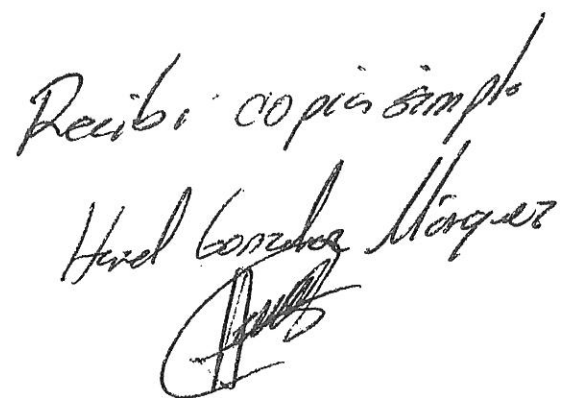 Recibi copia simple
Gonzalez Márquez